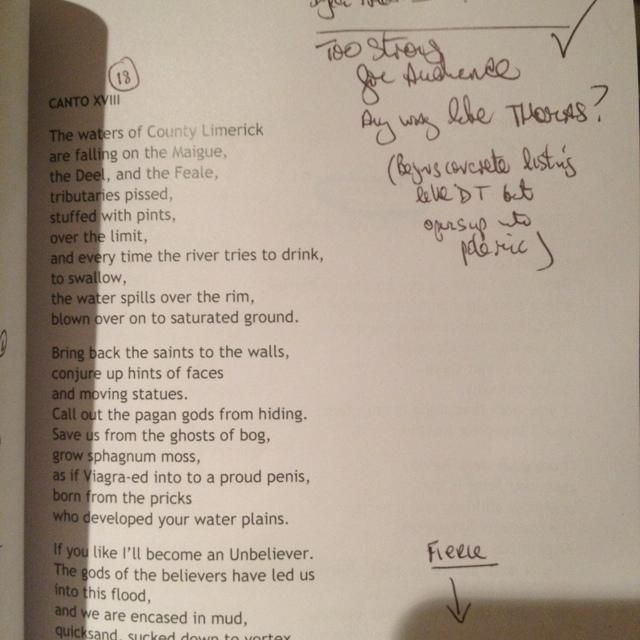 Too Strong
for Audience
Any way like THOMAS?
(Begins concrete listing
like DT but
opens up to
18
CANTO XVIII
The waters of County Limerick
are falling on the Maigue,
the Deel, and the Feale,
tributaries pissed,
stuffed with pints,
over the limit,
and every time the river tries to drink,
to swallow,
the water spills over the rim,
blown over on to saturated ground.
Bring back the saints to the walls,
conjure up hints of faces
and moving statues.
Call out the pagan gods from hiding.
Save us from the ghosts of bog,
grow sphagnum moss,
as if Viagra-ed into to a proud penis,
born from the pricks
who developed your water plains.
If you like I'll become an Unbeliever.
The gods of the believers have led us
into this flood,
and we are encased in mud,
quicksand, sucked down to vortex
Fierce